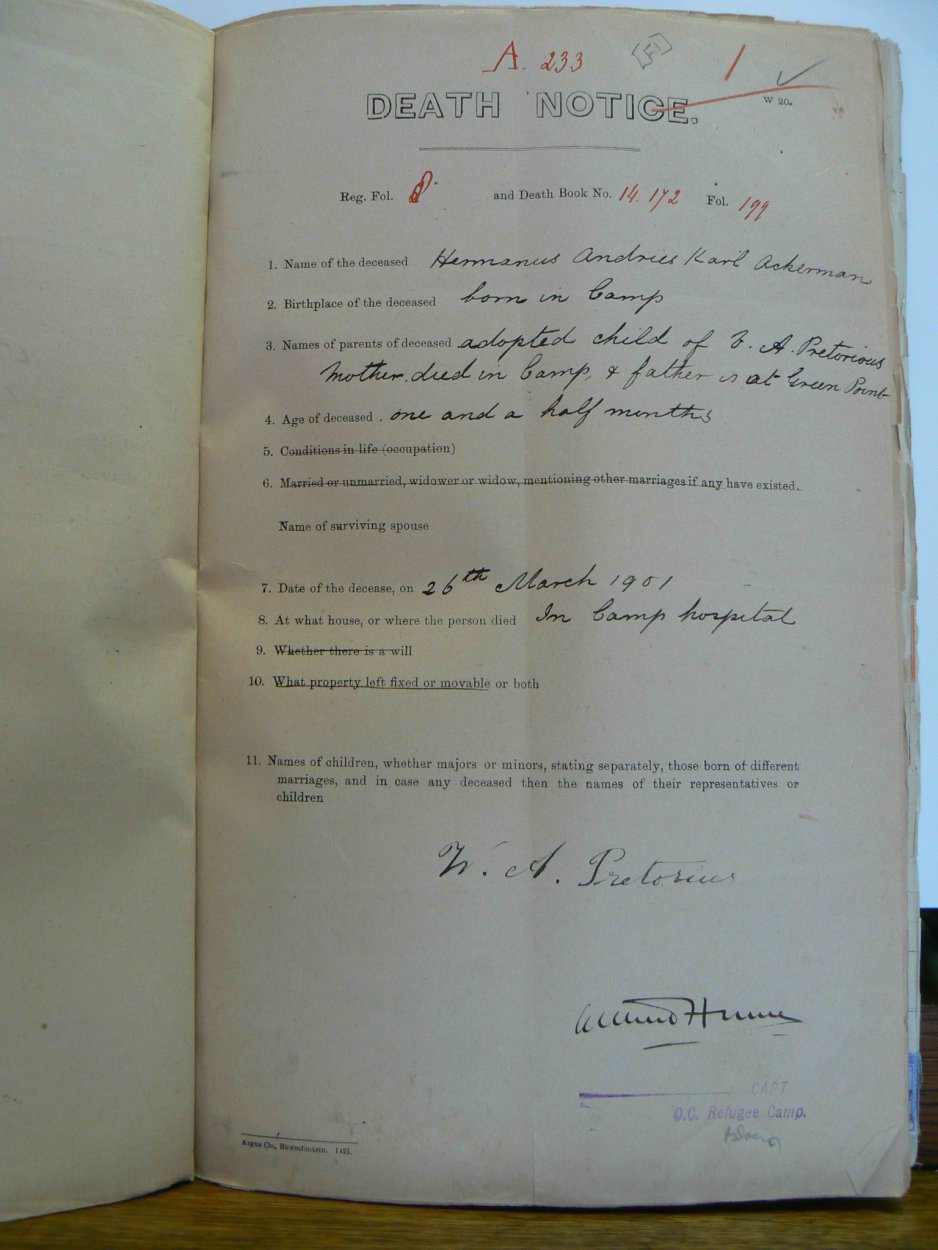 A. 233
1
DEATH NOTICE.
W 20.
Reg. Fol. 8. and Death Book No. 14.172 Fol. 199
1. Name of the deceased Hermanus Andries Karl Ackerman
2. Birthplace of the deceased born in Camp
3. Names of parents of deceased adopted child of V. A. Pretorious
Mother died in Camp, & father is at Green Point
4. Age of deceased . one and a half months
5. Conditions in life (occupation)
6. Married or unmarried, widower or widow, mentioning other marriages if any have existed.
Name of surviving spouse
7. Date of the decease, on 26th March 1901
8. At what house, or where the person died In Camp hospital
9. Whether there is a will
10. What property left fixed or movable or both
11. Names of children, whether majors or minors, stating separately, those born of different
marriages, and in case any deceased then the names of their representatives or
children
W. A. Pretorius
CAPT
O.C. Refugee Camp.
Argus Co., Bloemfontein. 1421.